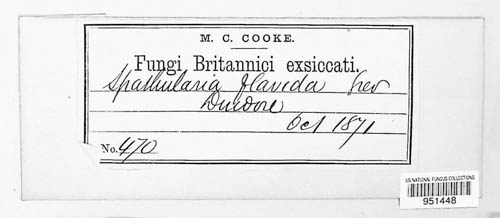 M. C. COOKE.
Fungi Britannici exsiccati.
Spathularia flavida Grev
Oct 1871
No. 470
US NATIONAL FUNGUS COLLECTIONS
951448